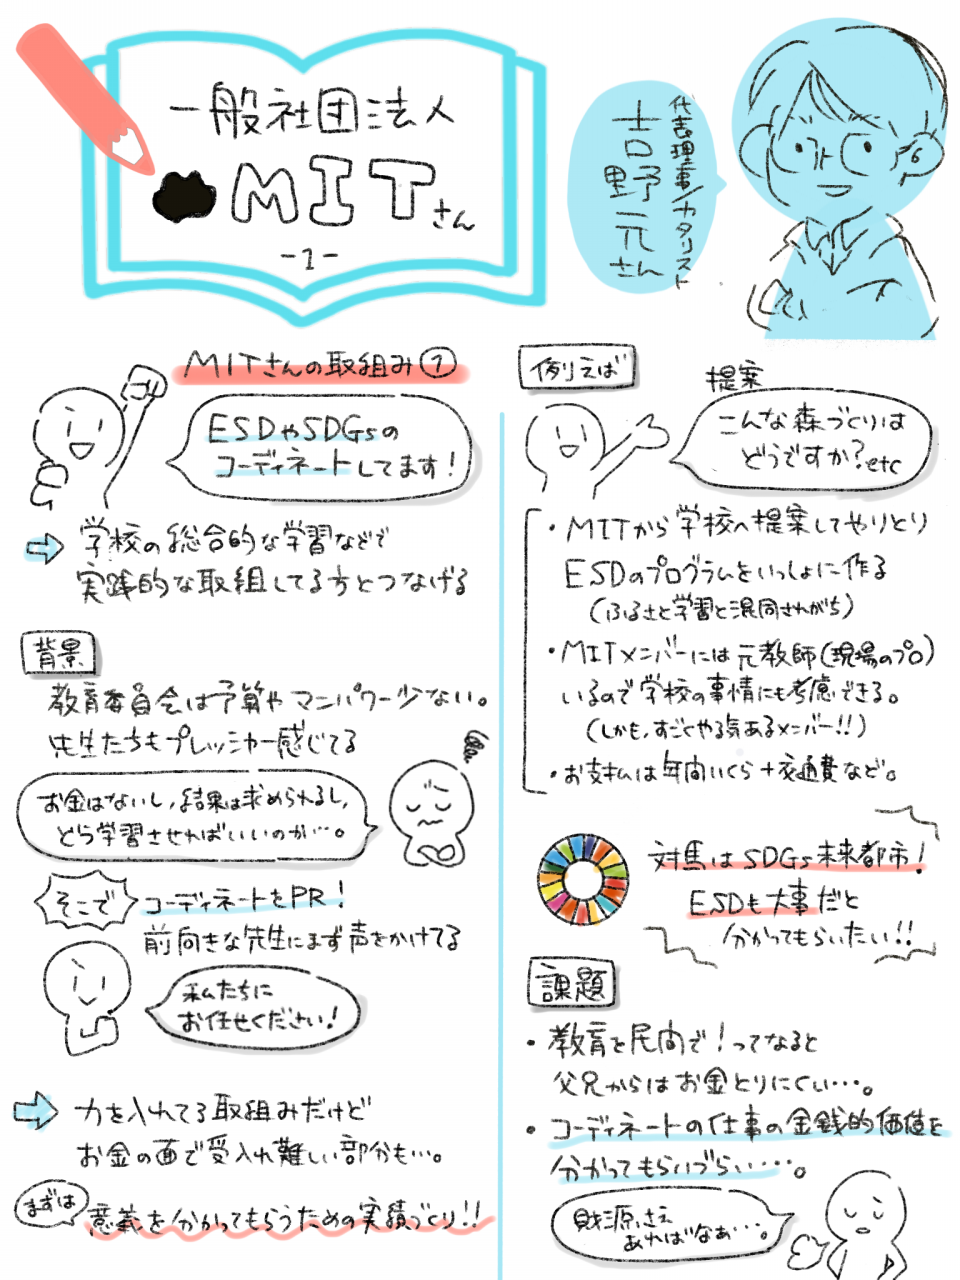 一般社団法人
MITさん
-1-
代表理事/カタリスト
吉野 元さん
MITさんの取組み①
ESDやSDGsの
コーディネートしてます!
学校の総合的な学習などで
実践的な取組してる方とつなげる
背景
教育委員会は予算やマンパワー少ない。
先生たちもプレッシャー感じてる
お金はないし、結果は求められるし、
どう学習させればいいのか…。
そこで
コーディネートをPR!
前向きな先生にまず声をかけてる
私たちに
お任せください!
力を入れてる取組みだけど
お金の面で受入れ難しい部分も…。
まずは
意義を分かってもらうための実績づくり!!
例えば
提案
こんな森づくりは
どうですか?etc
・MITから学校へ提案してやりとり
ESDのプログラムをいっしょに作る
(ふるさと学習と混同されがち)
・MITメンバーには元教師(現場のプロ)
いるので学校の事情にも考慮できる。
(しかも、すごくやる気あるメンバー!!)
・お支払は年間いくら+交通費など。
対馬はSDGs未来都市!
ESDも大事だと
分かってもらいたい!!
課題
・教育を民間で!ってなると
父兄からはお金とりにくい…。
・コーディネートの仕事の金銭的価値を
分かってもらいづらい…。
財源さえ
あればなぁ…。